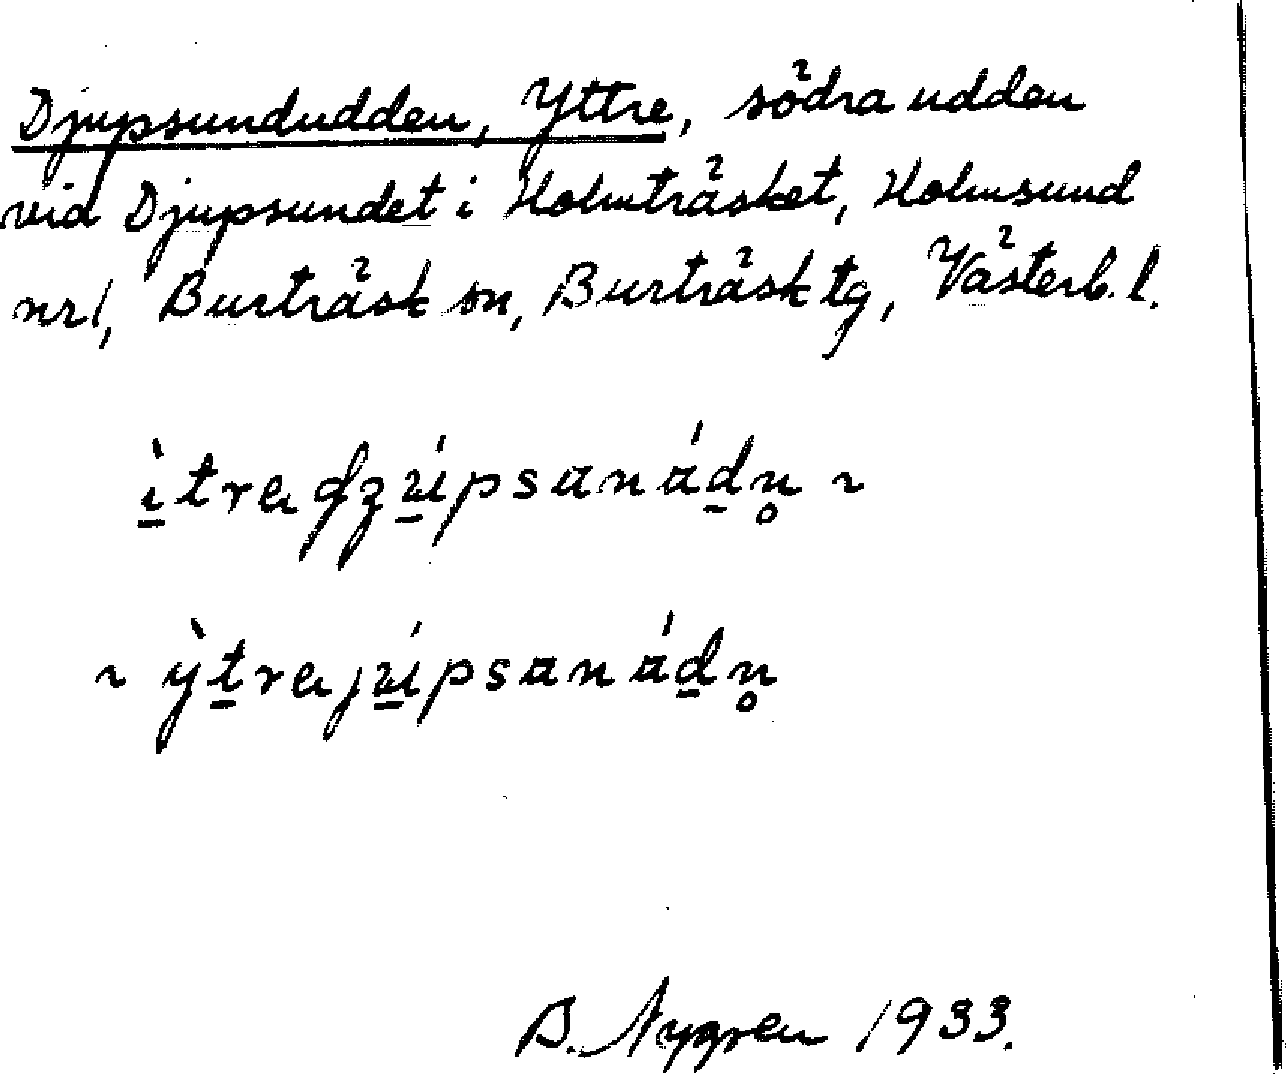 Djupsundudden, Yttre, södra udden
vid Djupsundet i Holmträsket, Holmsund
nr 1, Burträsk sn, Burträsk tg, Västerb. l.
ì̱treʤú̱psananáḏn̥ ~
~ ỳṯrejú̱psananáḏn̥
B. Nygren 1933.